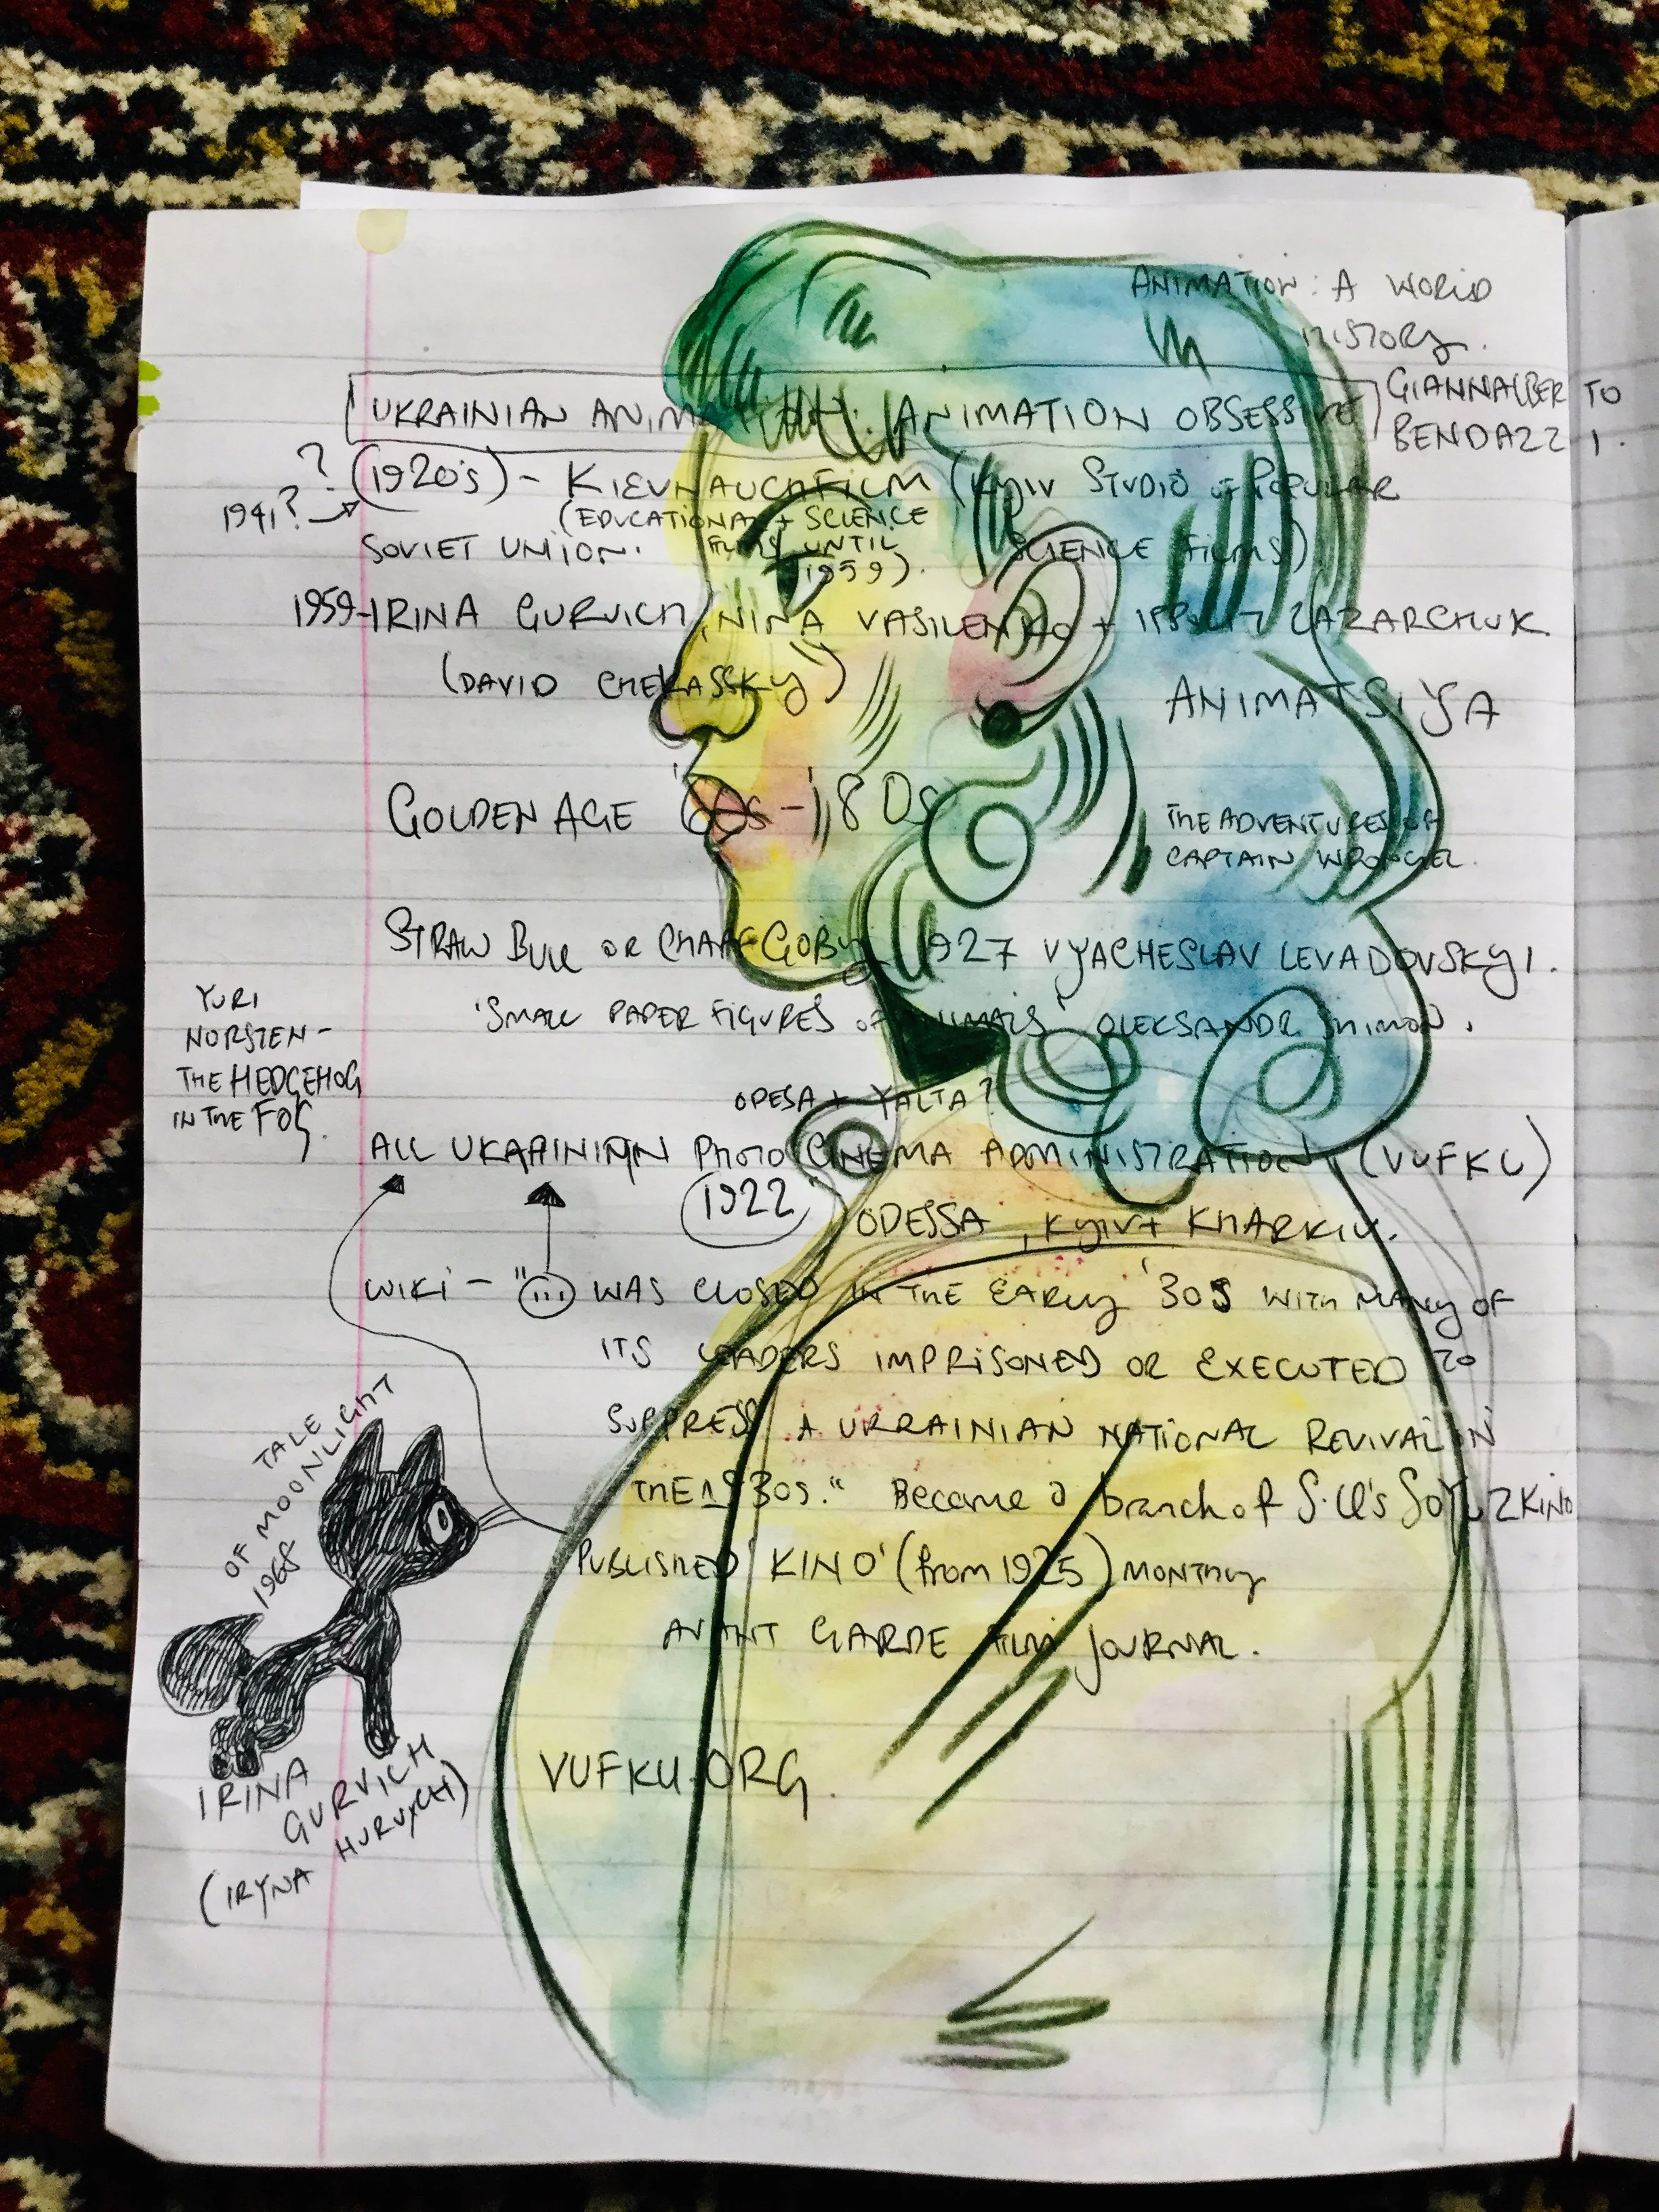 ANIMATION: A WORLD
HISTORY.
GIANNALBERTO
BENDAZZI.
UKRAINIAN ANIMATION: ANIMATION OBSESSIVE
?
1941?
(1920's) - KIEVNAUCHFILM (KYIV STUDIO OF POPULAR
(EDUCATIONAL + SCIENCE
SOVIET UNION. FILMS UNTIL SCIENCE FILMS)
1959).
1959-IRINA GURVICH, NINA VASILENKO + IPPOLIT LAZARCHUK.
(DAVID CHEKASSKY)
ANIMATSIYA
GOLDEN AGE '60s-'80s
THE ADVENTURES OF
CAPTAIN WRONGEL.
STRAW BULL OR CHAFF GOBY 1927 VYACHESLAV LEVADOVSKYI.
'SMALL PAPER FIGURES OF ANIMALS' OLEKSANDR
YURI
NORSTEN-
THE HEDGEHOG
IN THE FOG.
ODESA + YALTA?
ALL UKARINIAN PHOTO CINEMA ADMINISTRATION (VUFKU)
1922 ODESSA, KYIV + KHARKIV.
WIKI - "... WAS CLOSED IN THE EARLY '30s WITH MANY OF
ITS LEADERS IMPRISONED OR EXECUTED TO
SUPPRESS A UKRAINIAN NATIONAL REVIVAL IN
THE 1930s." Became a branch of S.U's SOYUZKINO
PUBLISHED 'KINO' (from 1925) MONTHLY
AVANT GARDE FILM JOURNAL.
TALE
OF MOONLIGHT
1968
IRINA
GURVICH
(IRYNA HURVYCH)
VUFKU.ORG.